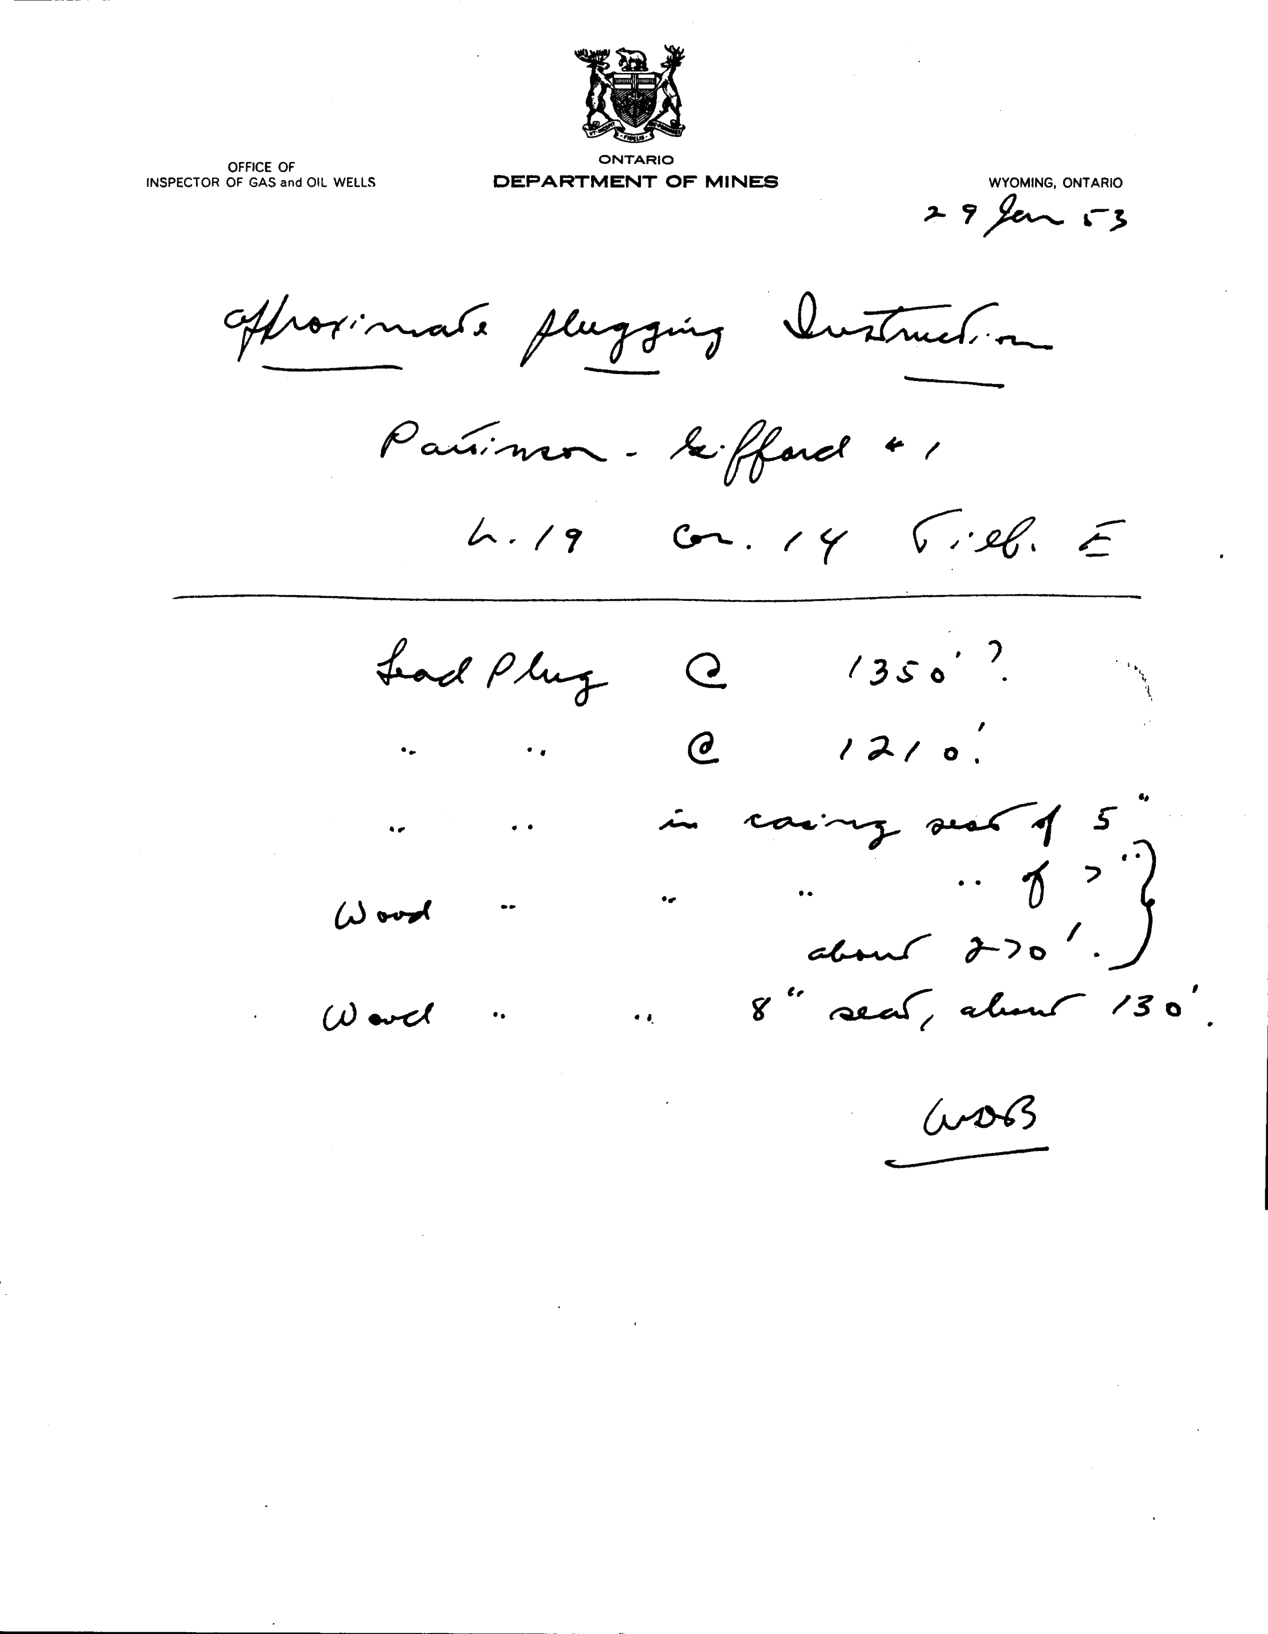 OFFICE OF
INSPECTOR OF GAS and OIL WELLS
ONTARIO
DEPARTMENT OF MINES
WYOMING, ONTARIO
29 Jan 53
Approximate plugging Instruction
Pattinson - Gifford #1
L. 19 Con. 14 Tilb. E
Lead Plug @ 1350' ?
" " @ 1210'.
" " in casing seat of 5"
Wood " " " " of 7" }
about 270'. }
Wood " " 8" seat, about 130'.
WDB